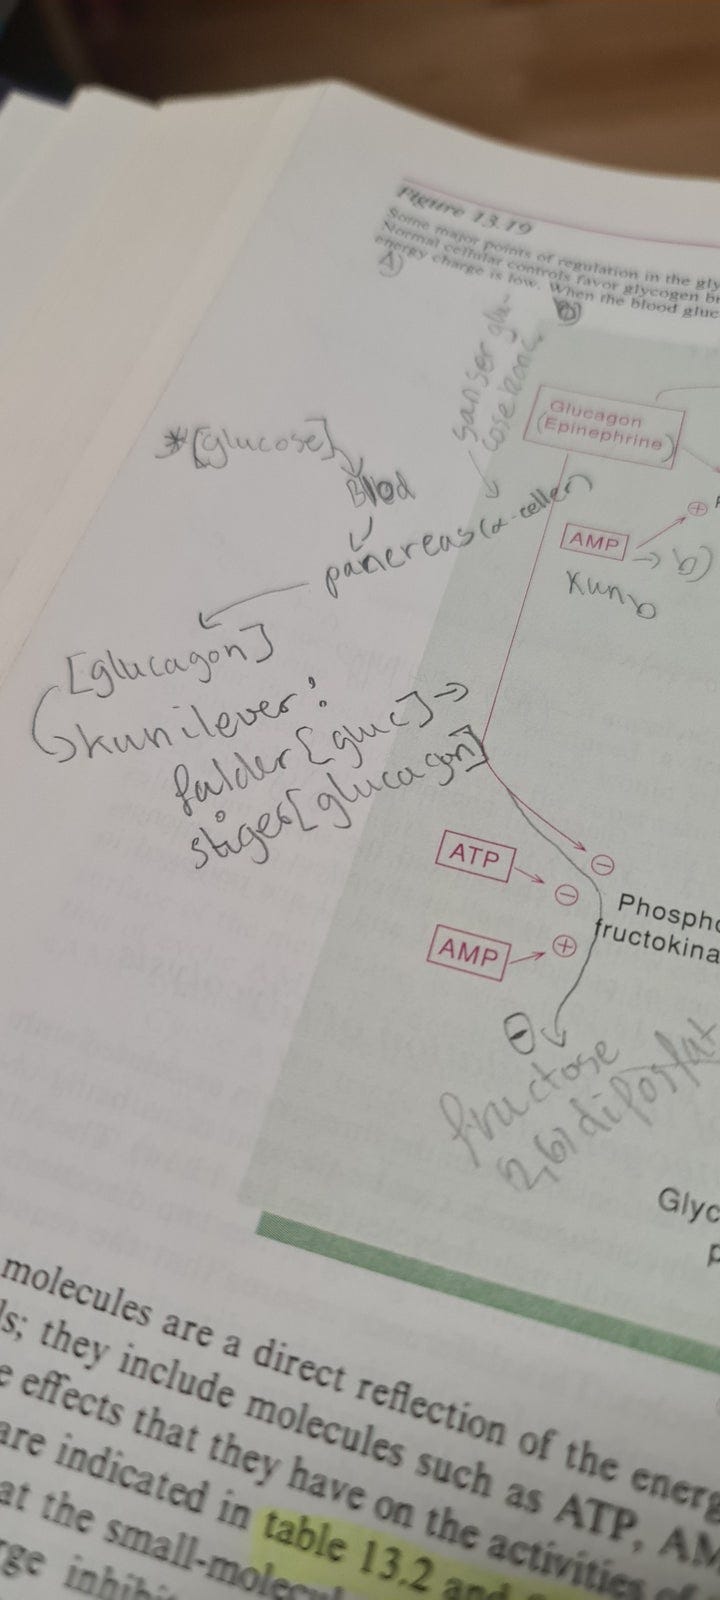 Figure 13.19
Some major points of regulation in the gly
Normal cellular controls favor glycogen br
energy charge is low. When the blood gluc
A)
b)
sanser glu-
cose konc.
Glucagon
(Epinephrine)
*[glucose]
Blod
pancreas (α-celler)
[glucagon]
kun i lever:
falder [gluc] →
stiger [glucagon]
+
AMP → b)
kun b
ATP
−
−
AMP
+
Phospho
fructokina
−
fructose
2,6) difosfat
Glyc
p
molecules are a direct reflection of the energ
ls; they include molecules such as ATP, AM
e effects that they have on the activities of
are indicated in table 13.2 and
at the small-molecul
rge inhibi